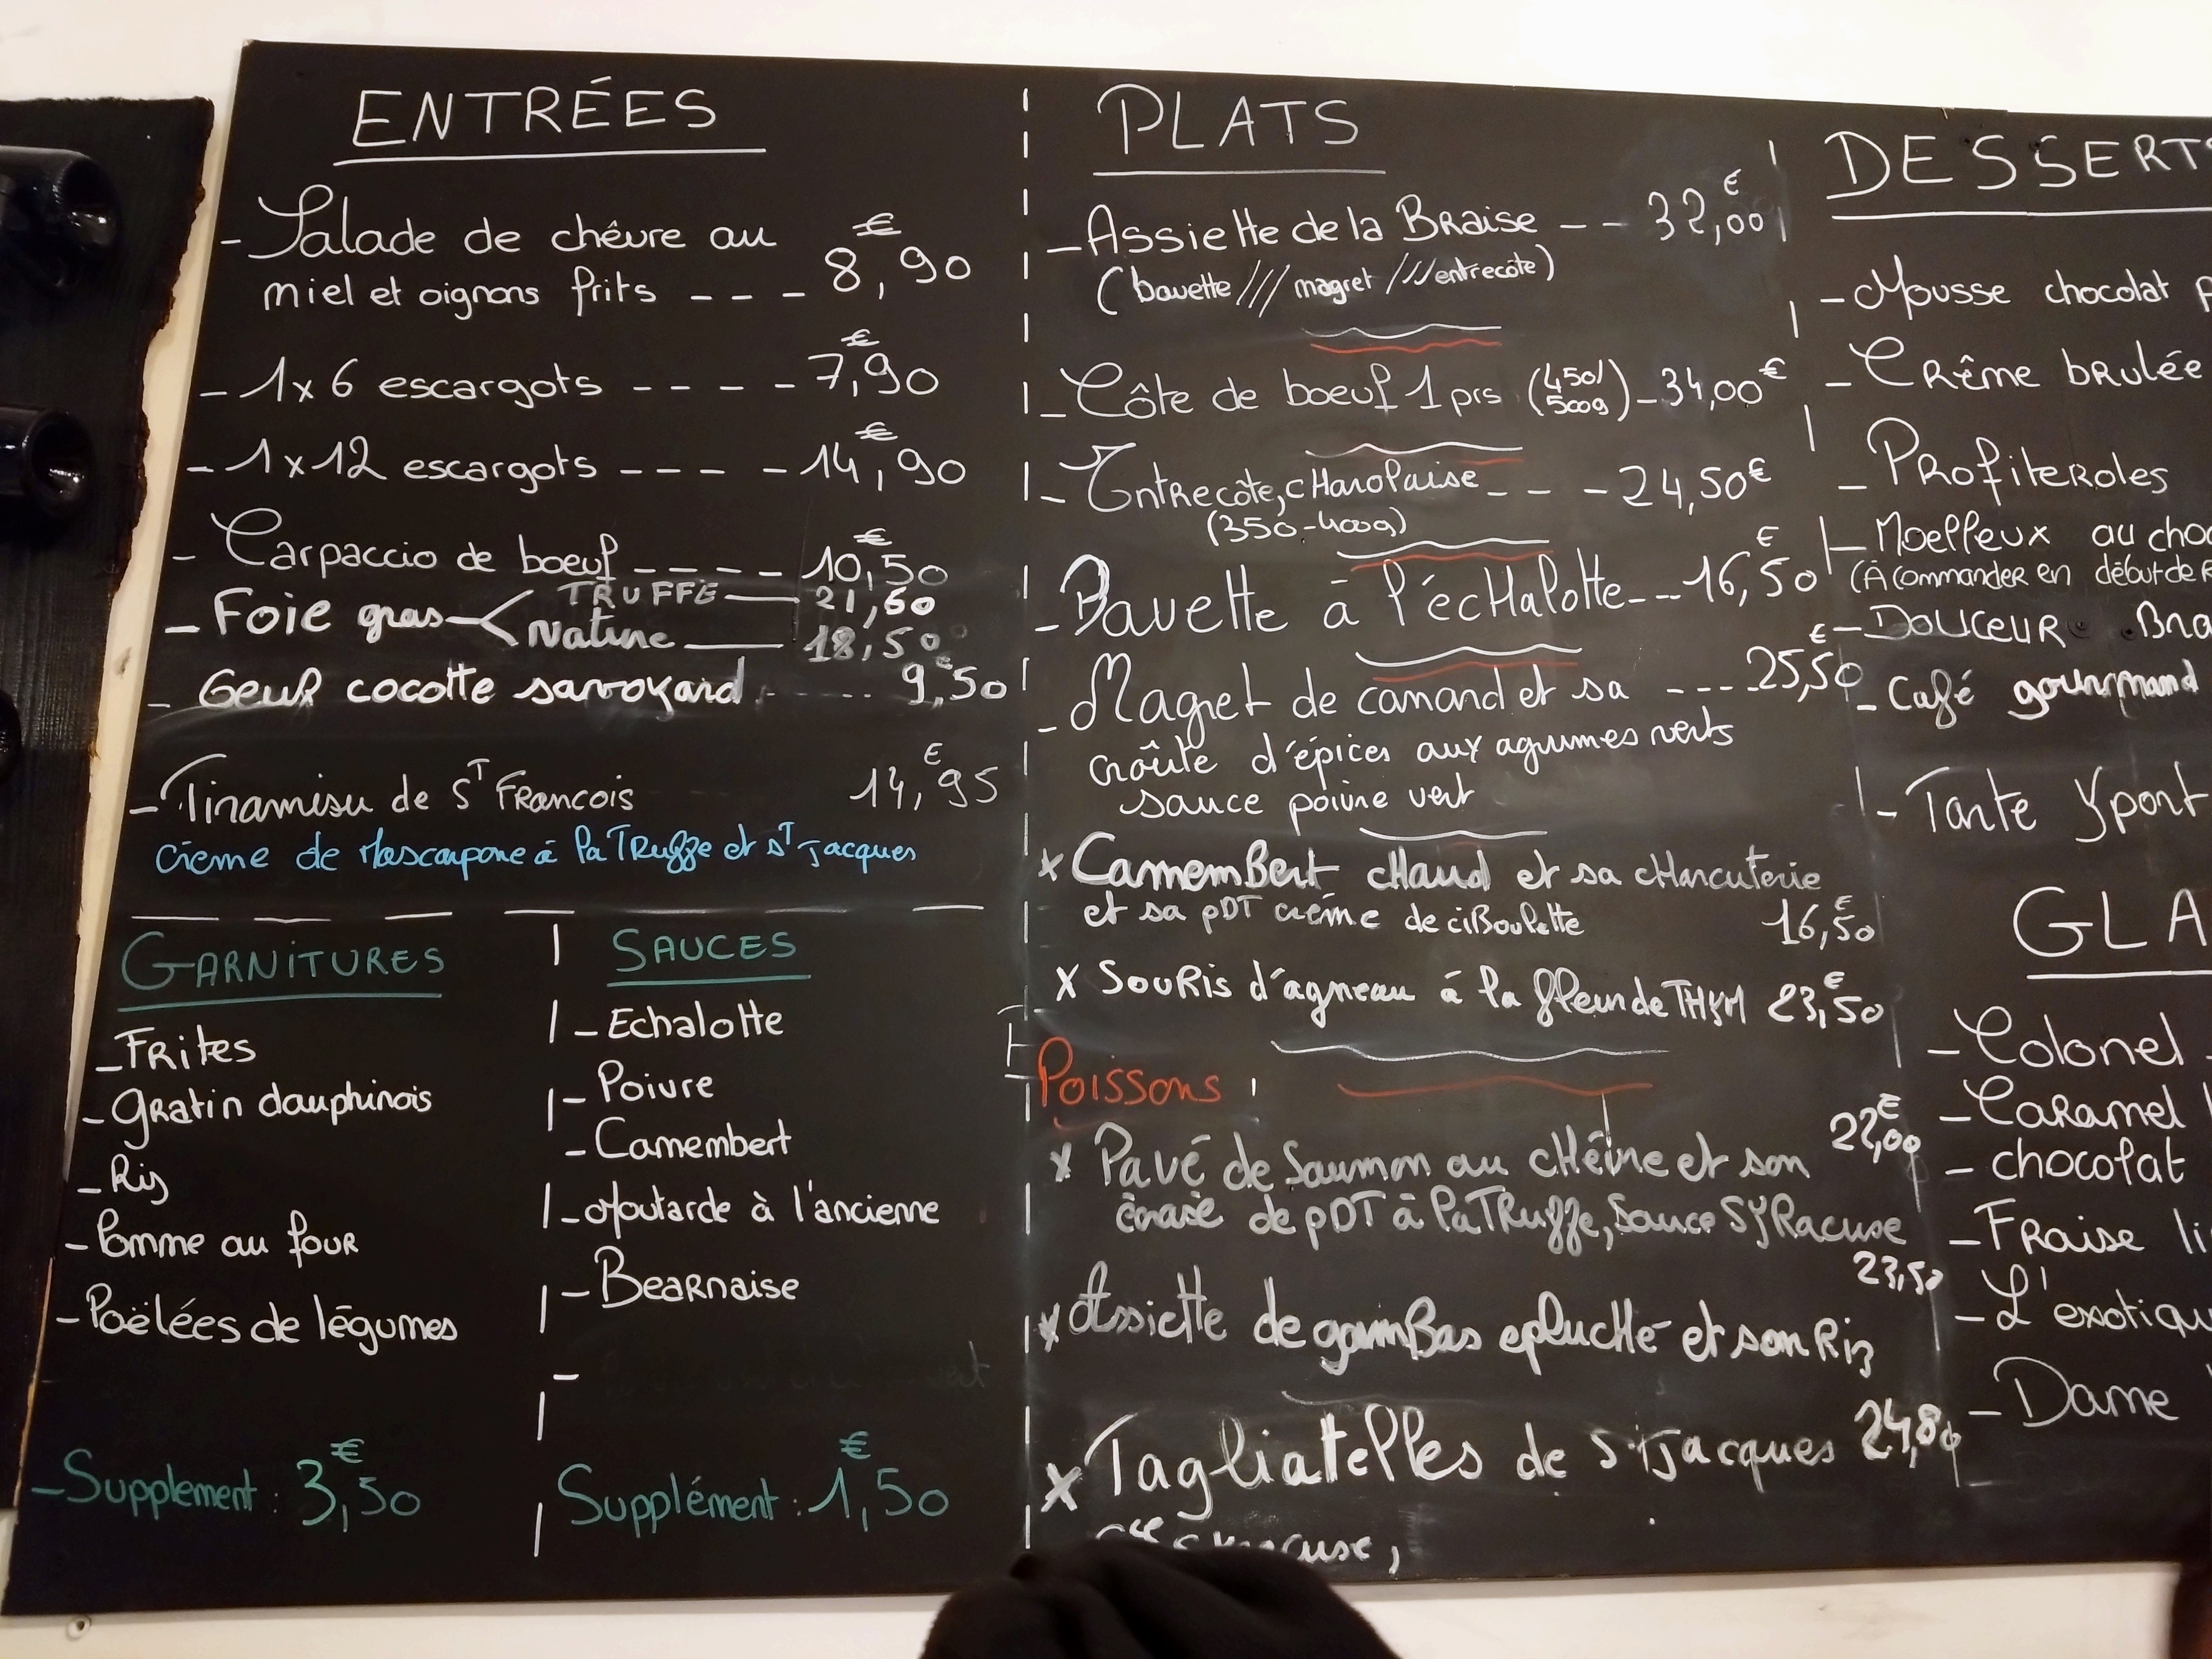 ENTRÉES
- Salade de chêvre au
miel et oignons frits - - - 8,90 €
- 1x6 escargots - - - - 7,90 €
- 1x12 escargots - - - - 14,90 €
- Carpaccio de boeuf - - - - 10,50 €
- Foie gras < TRUFFE — 21,60
Nature — 18,50
- Oeuf cocotte savoyard - - - - 9,50 €
- Tiramisu de ST Francois 14,95 €
crème de Mascarpone à la Truffe et ST jacques
GARNITURES
- Frites
- Gratin dauphinois
- Riz
- Pomme au four
- Poëlées de légumes
- Supplement : 3,50 €
SAUCES
- Echalotte
- Poivre
- Camembert
- Moutarde à l'ancienne
- Bearnaise
-
Supplément : 1,50 €
PLATS
- Assiette de la Braise - - 32,00 €
(bavette /// magret /// entrecôte)
- Côte de boeuf 1 prs (450/ 500g) - 34,00 €
- Entrecôte, cHarolaise - - - 24,50 €
(350-400g)
- Bavette à l'écHalotte - - - 16,50 €
- Magret de canard et sa - - - 25,50 €
croûte d'épices aux agrumes verts
sauce poivre vert
x CamemBert cHaud et sa cHarcuterie
et sa PDT crème de ciBoulette 16,50 €
x Souris d'agneau à la fleur de THYM 23,50 €
Poissons :
x Pavé de Saumon au cHêne et son 22,00 €
écrasé de PDT à la Truffe, Sauce SYRacuse
x Assiette de gamBas eplucHé et son Riz 23,50
x Tagliatelles de ST jacques 24,80
DESSERTS
- Mousse chocolat
- Crême brulée
- Profiteroles
- Moelleux au choc
(À commander en début de R
- Douceur Bra
- Café gourmand
- Tarte Yport
GLA
- Colonel -
- Caramel
- chocolat
- Fraise li
- L'exotiqu
- Dame